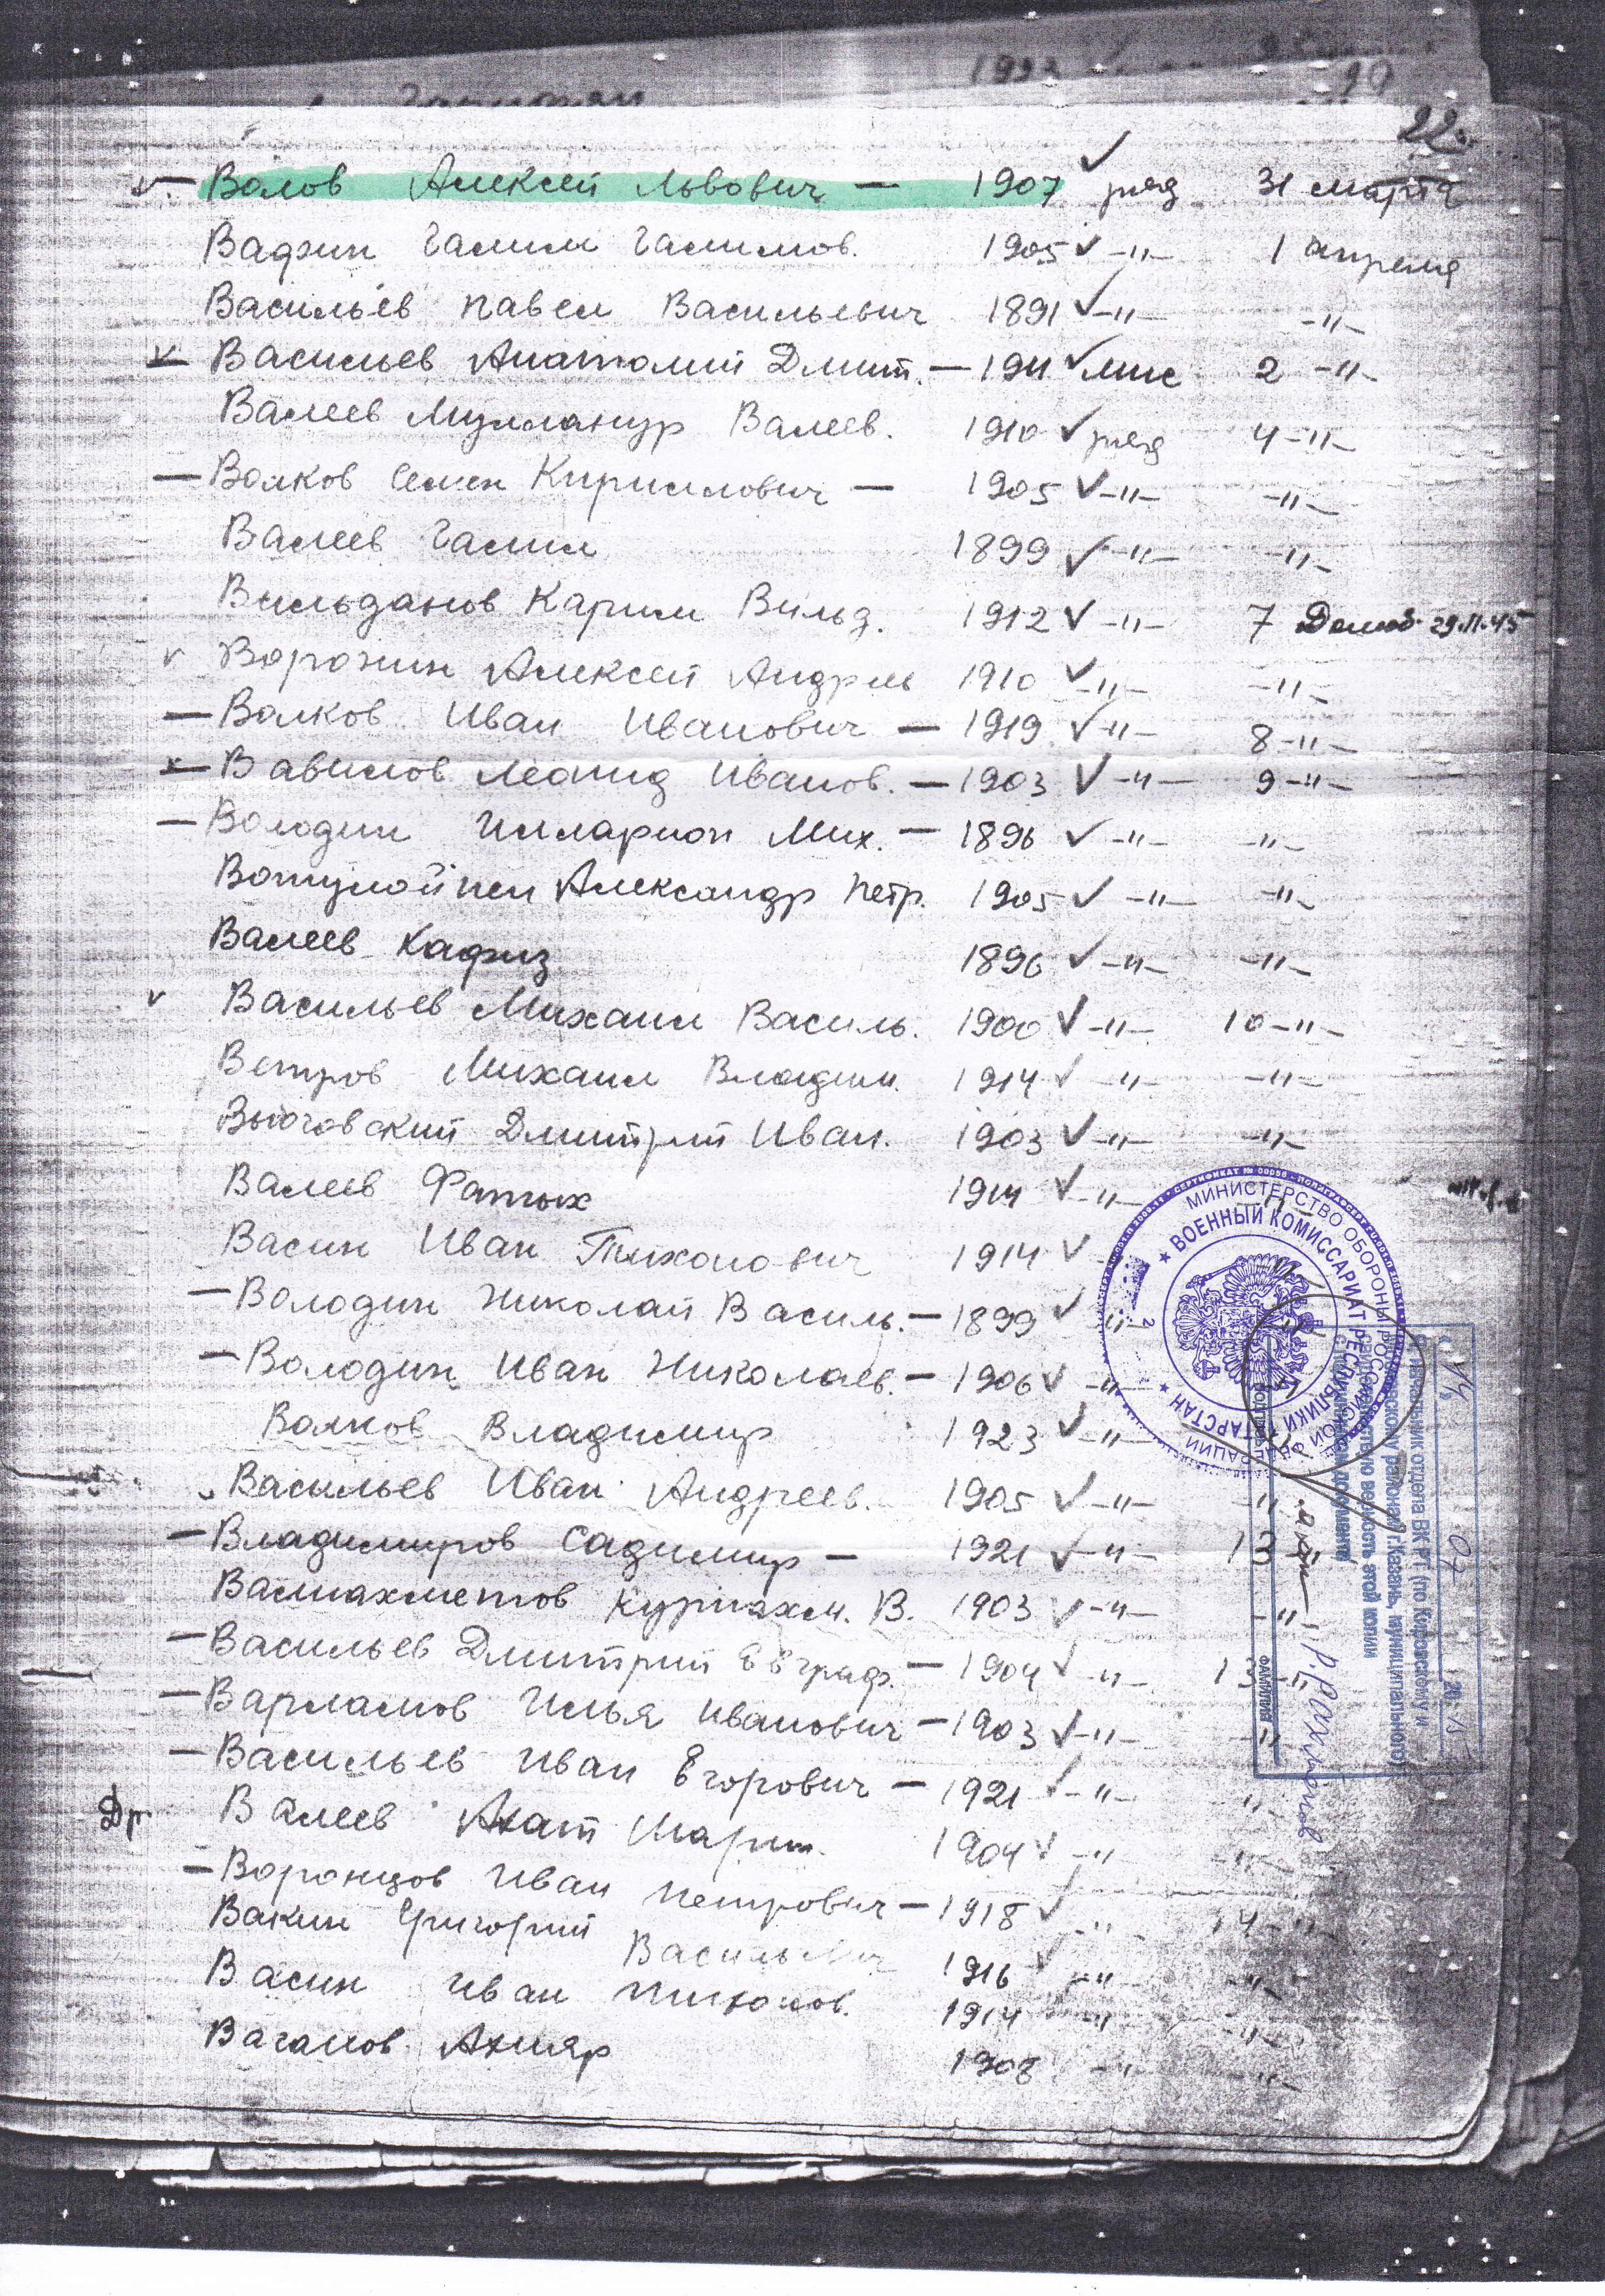 22.
Волов Алексей Львович — 1907 ряд 31 марта
Вафин Галим Галимов. 1905 -"- 1 апреля
Васильев Павел Васильевич 1891 -"- -"-
Васильев Анатолий Дмит. — 1911 мис 2 -"-
Валеев Мулланур Валеев. 1910 ряд 4 -"-
— Волков Семен Кириллович — 1905 -"- -"-
Валеев Галим 1899 -"- -"-
Вильданов Карим Вильд. 1912 -"- 7 Демоб. 29.11.45
Воронин Алексей Андрее 1910 -"- -"-
— Волков Иван Иванович — 1919 -"- 8 -"-
Вавилов Леонид Иванов. — 1903 -"- 9 -"-
— Володин Илларион Мих. — 1896 -"- -"-
Александр Петр. 1905 -"- -"-
Валеев Кафиз 1896 -"- -"-
Васильев Михаил Василь. 1900 -"- 10 -"-
Ветров Михаил Владим. 1914 -"- -"-
Вьюговский Дмитрий Иван. 1903 -"- -"-
Валеев Фатых 1914 -"- -"-
Васин Иван Тихонович 1914
— Володин Николай Василь. — 1899 -"-
— Володин Иван Николаев. — 1906 -"-
Волков Владимир 1923 -"-
Васильев Иван Андреев. 1905 -"- -"-
— Владимиров Садимир — 1921 -"- 13
Валиахметов Курмахм. В. 1903 -"- -"-
— Васильев Дмитрий Евграф. — 1904 -"- 13 -"-
— Варламов Илья Иванович — 1903 -"- -"-
— Васильев Иван Егорович — 1921 -"- -"-
Др. Валеев Ахат 1904 -"- -"-
— Воронцов Иван Петрович — 1918 -"- 14 -"-
Вакин Григорий Васильевич 1916 -"- -"-
Васин Иван Тихонов. 1914 -"- -"-
Ваганов Ахняр 1908 -"- -"-
МИНИСТЕРСТВО ОБОРОНЫ РОССИЙСКОЙ ФЕДЕРАЦИИ
★ ВОЕННЫЙ КОМИССАРИАТ РЕСПУБЛИКИ ТАТАРСТАН ★
2
07
Начальник отдела ВК РТ (по Кировскому и
Московскому районам г.Казань, муниципального)
верность этой копии
ФАМИЛИЯ